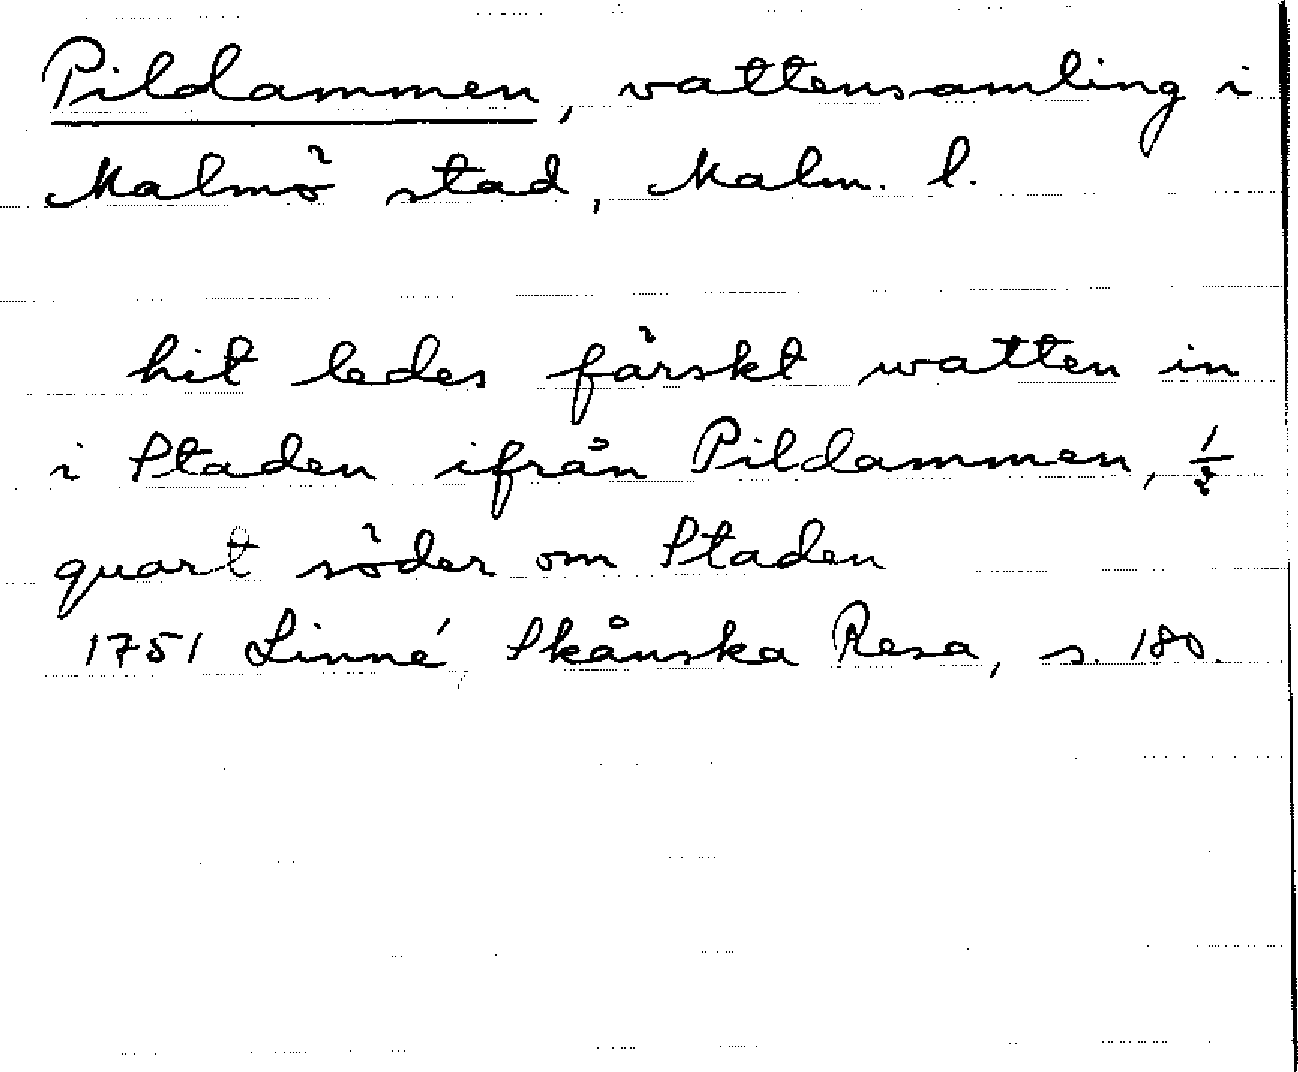 Pildammen, vattensamling i
Malmö stad, Malm. l.
hit ledes färskt watten in
i Staden ifrån Pildammen, 1/2
quart söder om Staden
1751 Linné, Skånska Resa, s. 180.